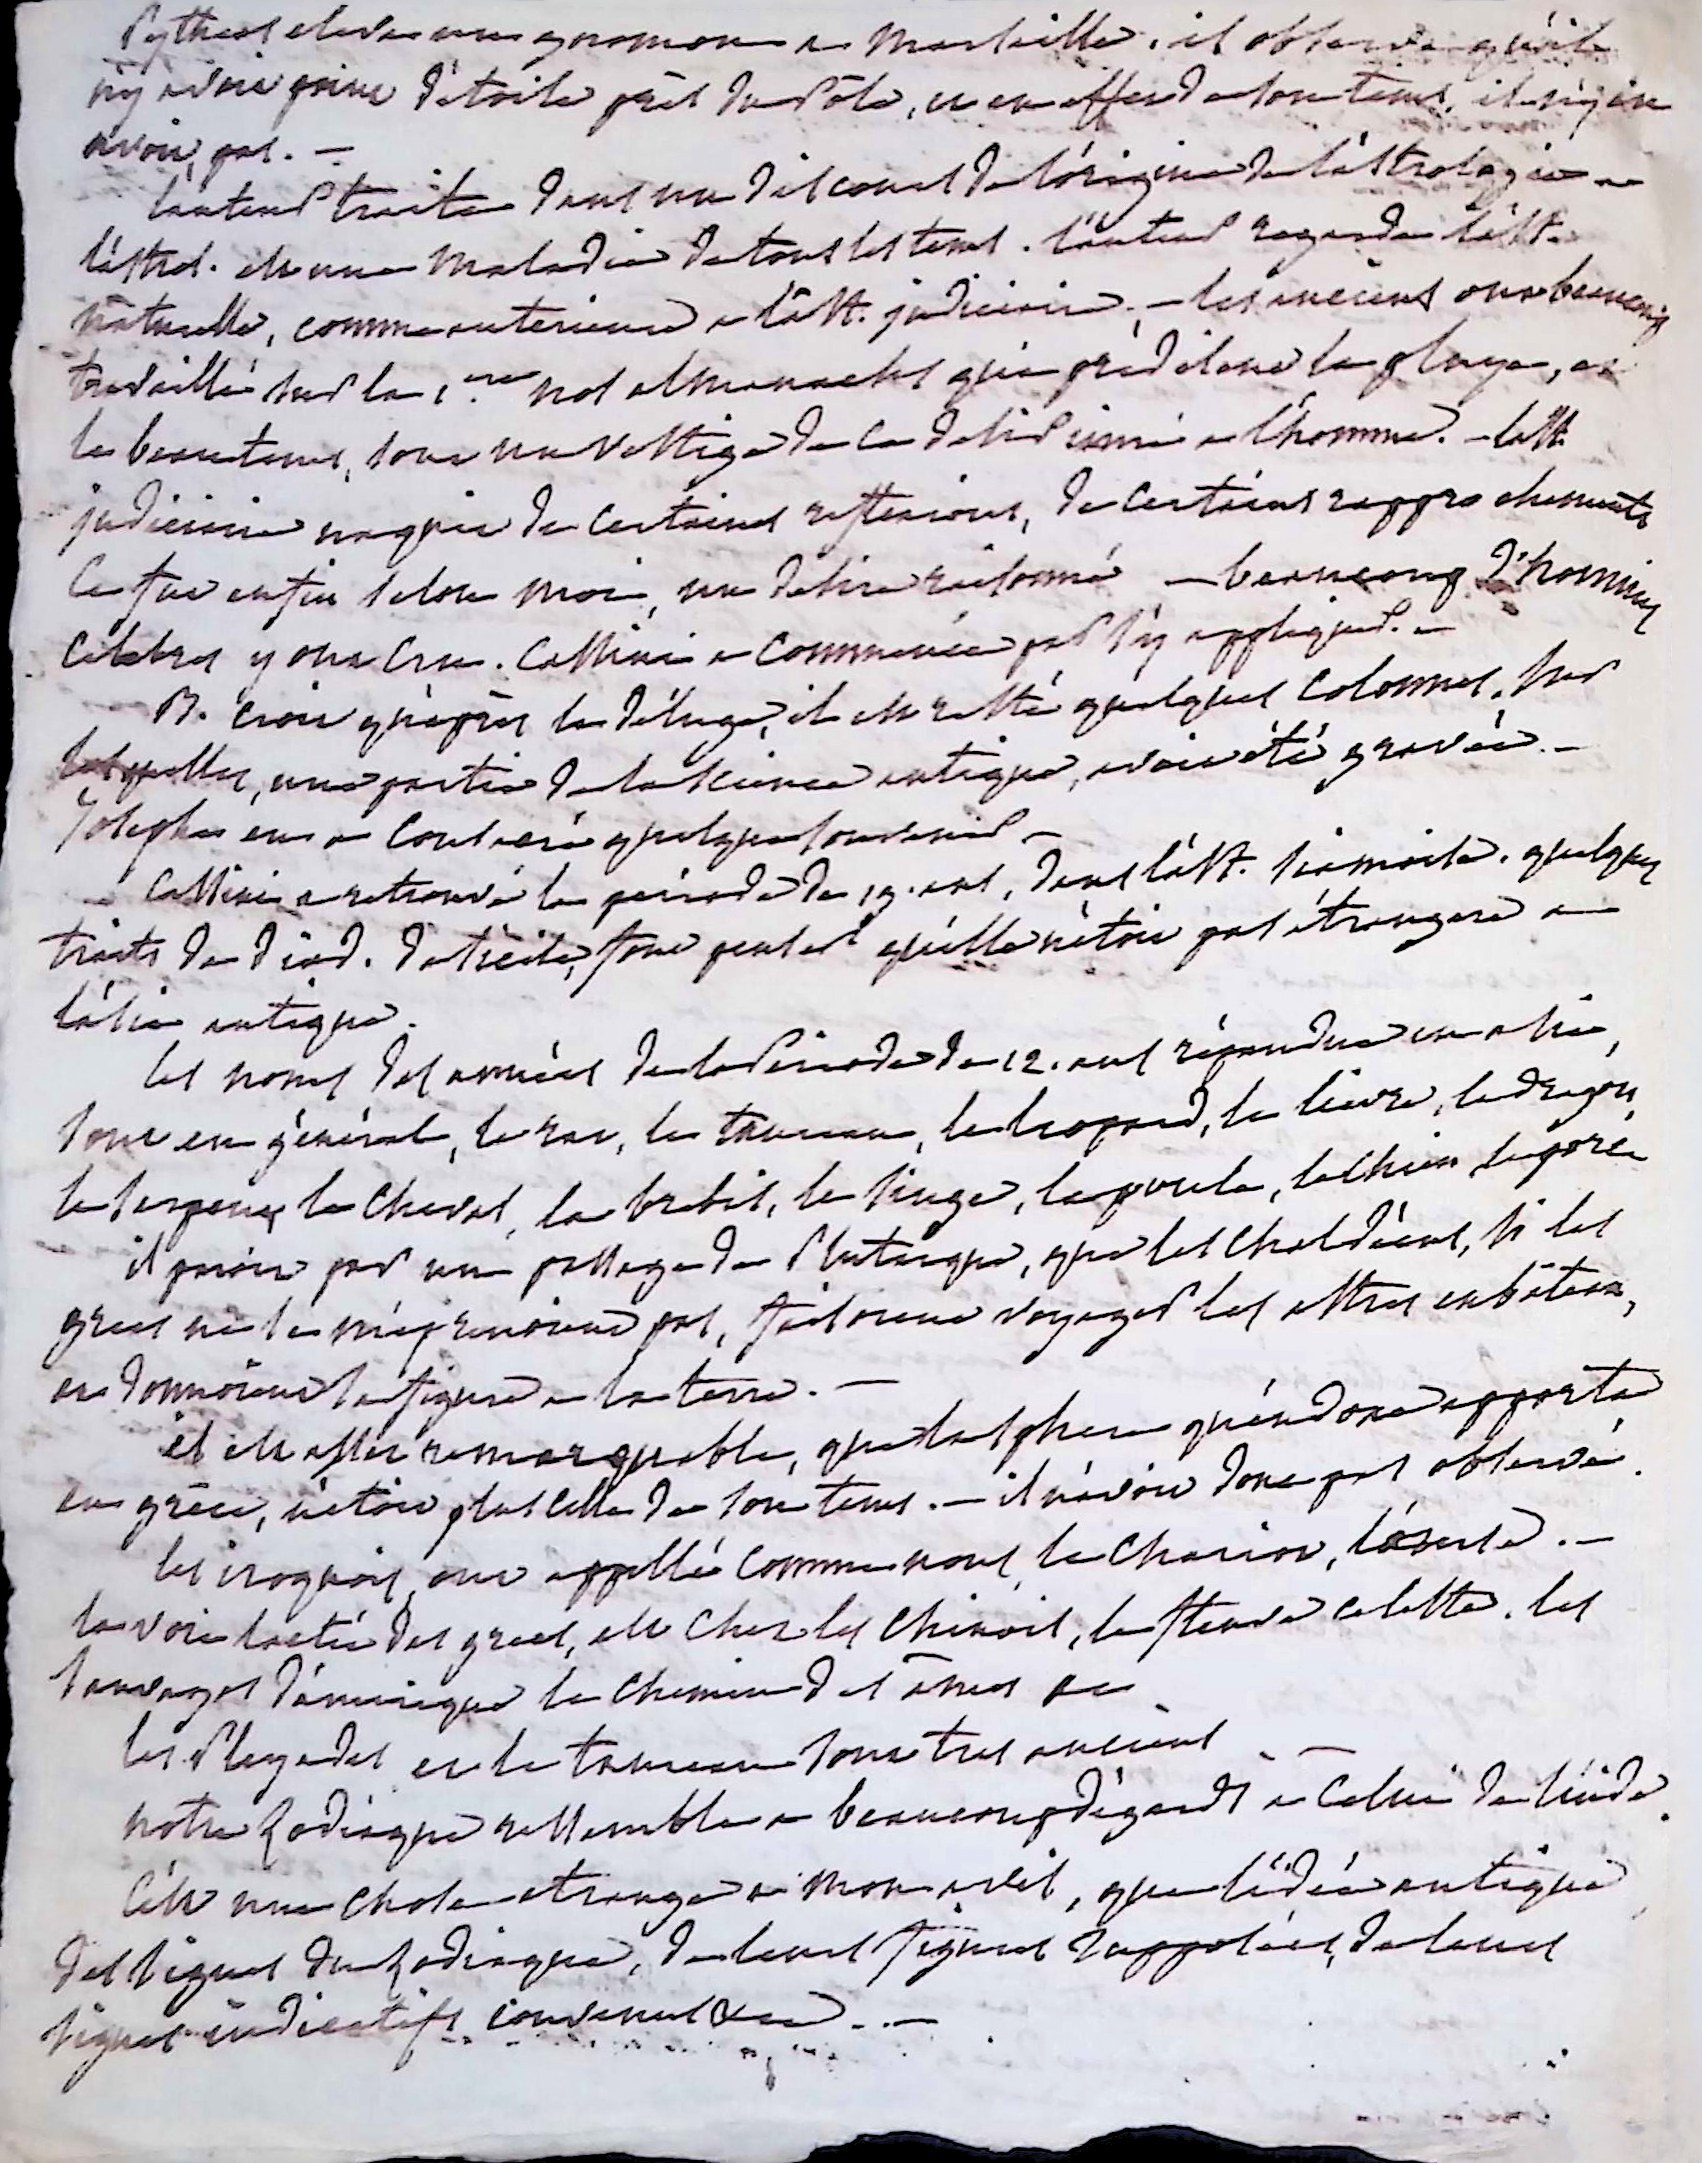 Pythéas eleva un gnomon a Marseille. il observa qu'il
n'y avoit point d'étoile près du Pôle, et en effet de son tems, il n'y en
avoit pas. —
l'auteur traite dans un discours de l'origine de l'astrologie —
l'astrol. est une maladie de tous les tems. l'auteur regarde l'ast.
naturelle, comme anterieure a l'ast. judiciaire. — les anciens ont beaucoup
travaillé sur la 1.ere nos almanachs qui prédisent la pluye, et
le beau tems, sont un vestige de ce delire inné a l'homme. — l'ast.
judiciaire naquit de certaines reflexions, de certains rapprochements
Ce fut enfin selon moi, un délire raisonné — beaucoup d'hommes
Celebres y ont cru. Cassini a commencé par s'y appliquer. —
B. croit qu'après le déluge, il est resté quelques colonnes, sur
lesquelles, une partie de la science antique, avoit été gravée. —
Josephe en a conservé quelque souvenir —
— Cassini a retrouvé la periode de 19. ans, dans l'ast. siamoise. quelques
traits de Diod. de Sicile, font penser qu'elle n'étoit pas étrangere a
l'asie antique.
les noms des années de la Periode de 12. ans répandue en asie,
sont en général, le rat, le taureau, le léopard, le lievre, le dragon,
le serpent, le cheval, la brebis, le singe, la poule, le chien le porc
il paroit par un passage de Plutarque, que les Chaldéens, si les
grecs ne se méprenoient pas, faisoient voyager les astres en bateau,
et donnoient sa figure a la terre. —
il est assez remarquable, que la sphere qu'eudoxe apporta
en grèce, n'étoit plus celle de son tems. — il n'avoit donc pas observé.
les iroquois, ont appellé comme nous, le chariot, l'ourse. —
la voie lactée des grecs, est chez les chinois, le fleuve celeste. les
sauvages d'amerique le chemin des âmes &c
les Pleyades et le taureau sont tres anciens
notre Zodiaque ressemble a beaucoup d'égards a celui de l'inde.
C'est une chose etrange a mon avis, que l'idée antique
des signes du Zodiaque, de leurs figures supposées, de leurs
signes indicatifs convenus &c. —